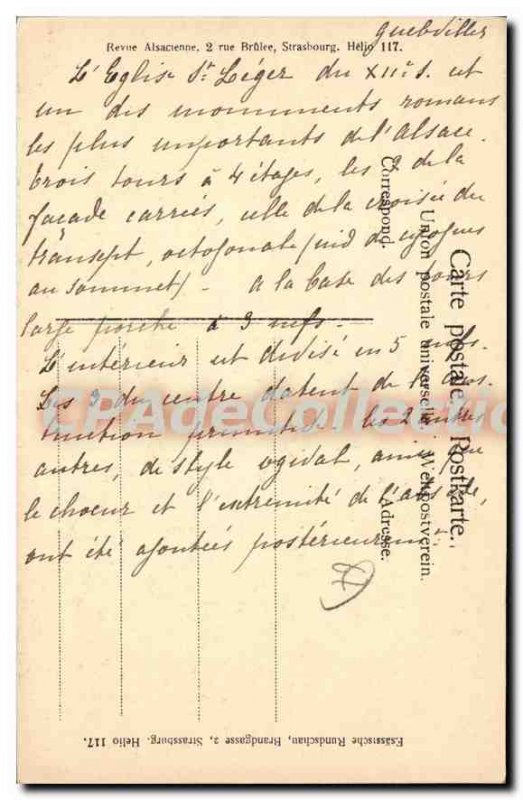 Guebviller
Revue Alsacienne, 2 rue Brûlée, Strasbourg. Hélio 117.
L'Eglise St Léger du XIIe S. est
un des monuments romans
les plus importants de l'Alsace.
Trois tours à 4 étages, les 2 de la
façade carrées, celle de la croisée du
transept, octogonale (nid de cigognes
au sommet). _ A la base des tours
large porche à 3 nefs. _
L'intérieur est divisé en 5 nefs.
Les 3 du centre datent de la cons-
truction primitive. les 2 autres
autres, de style ogival, ainsi que
le choeur et l'extrémité de l'abside,
ont été ajoutées postérieurement.
Carte postale. Postkarte.
Union postale universelle. Weltpostverein.
Correspond. Adresse.
Elsässische Rundschau, Brandgasse 2, Strassburg. Helio 117.
CPADeCollection